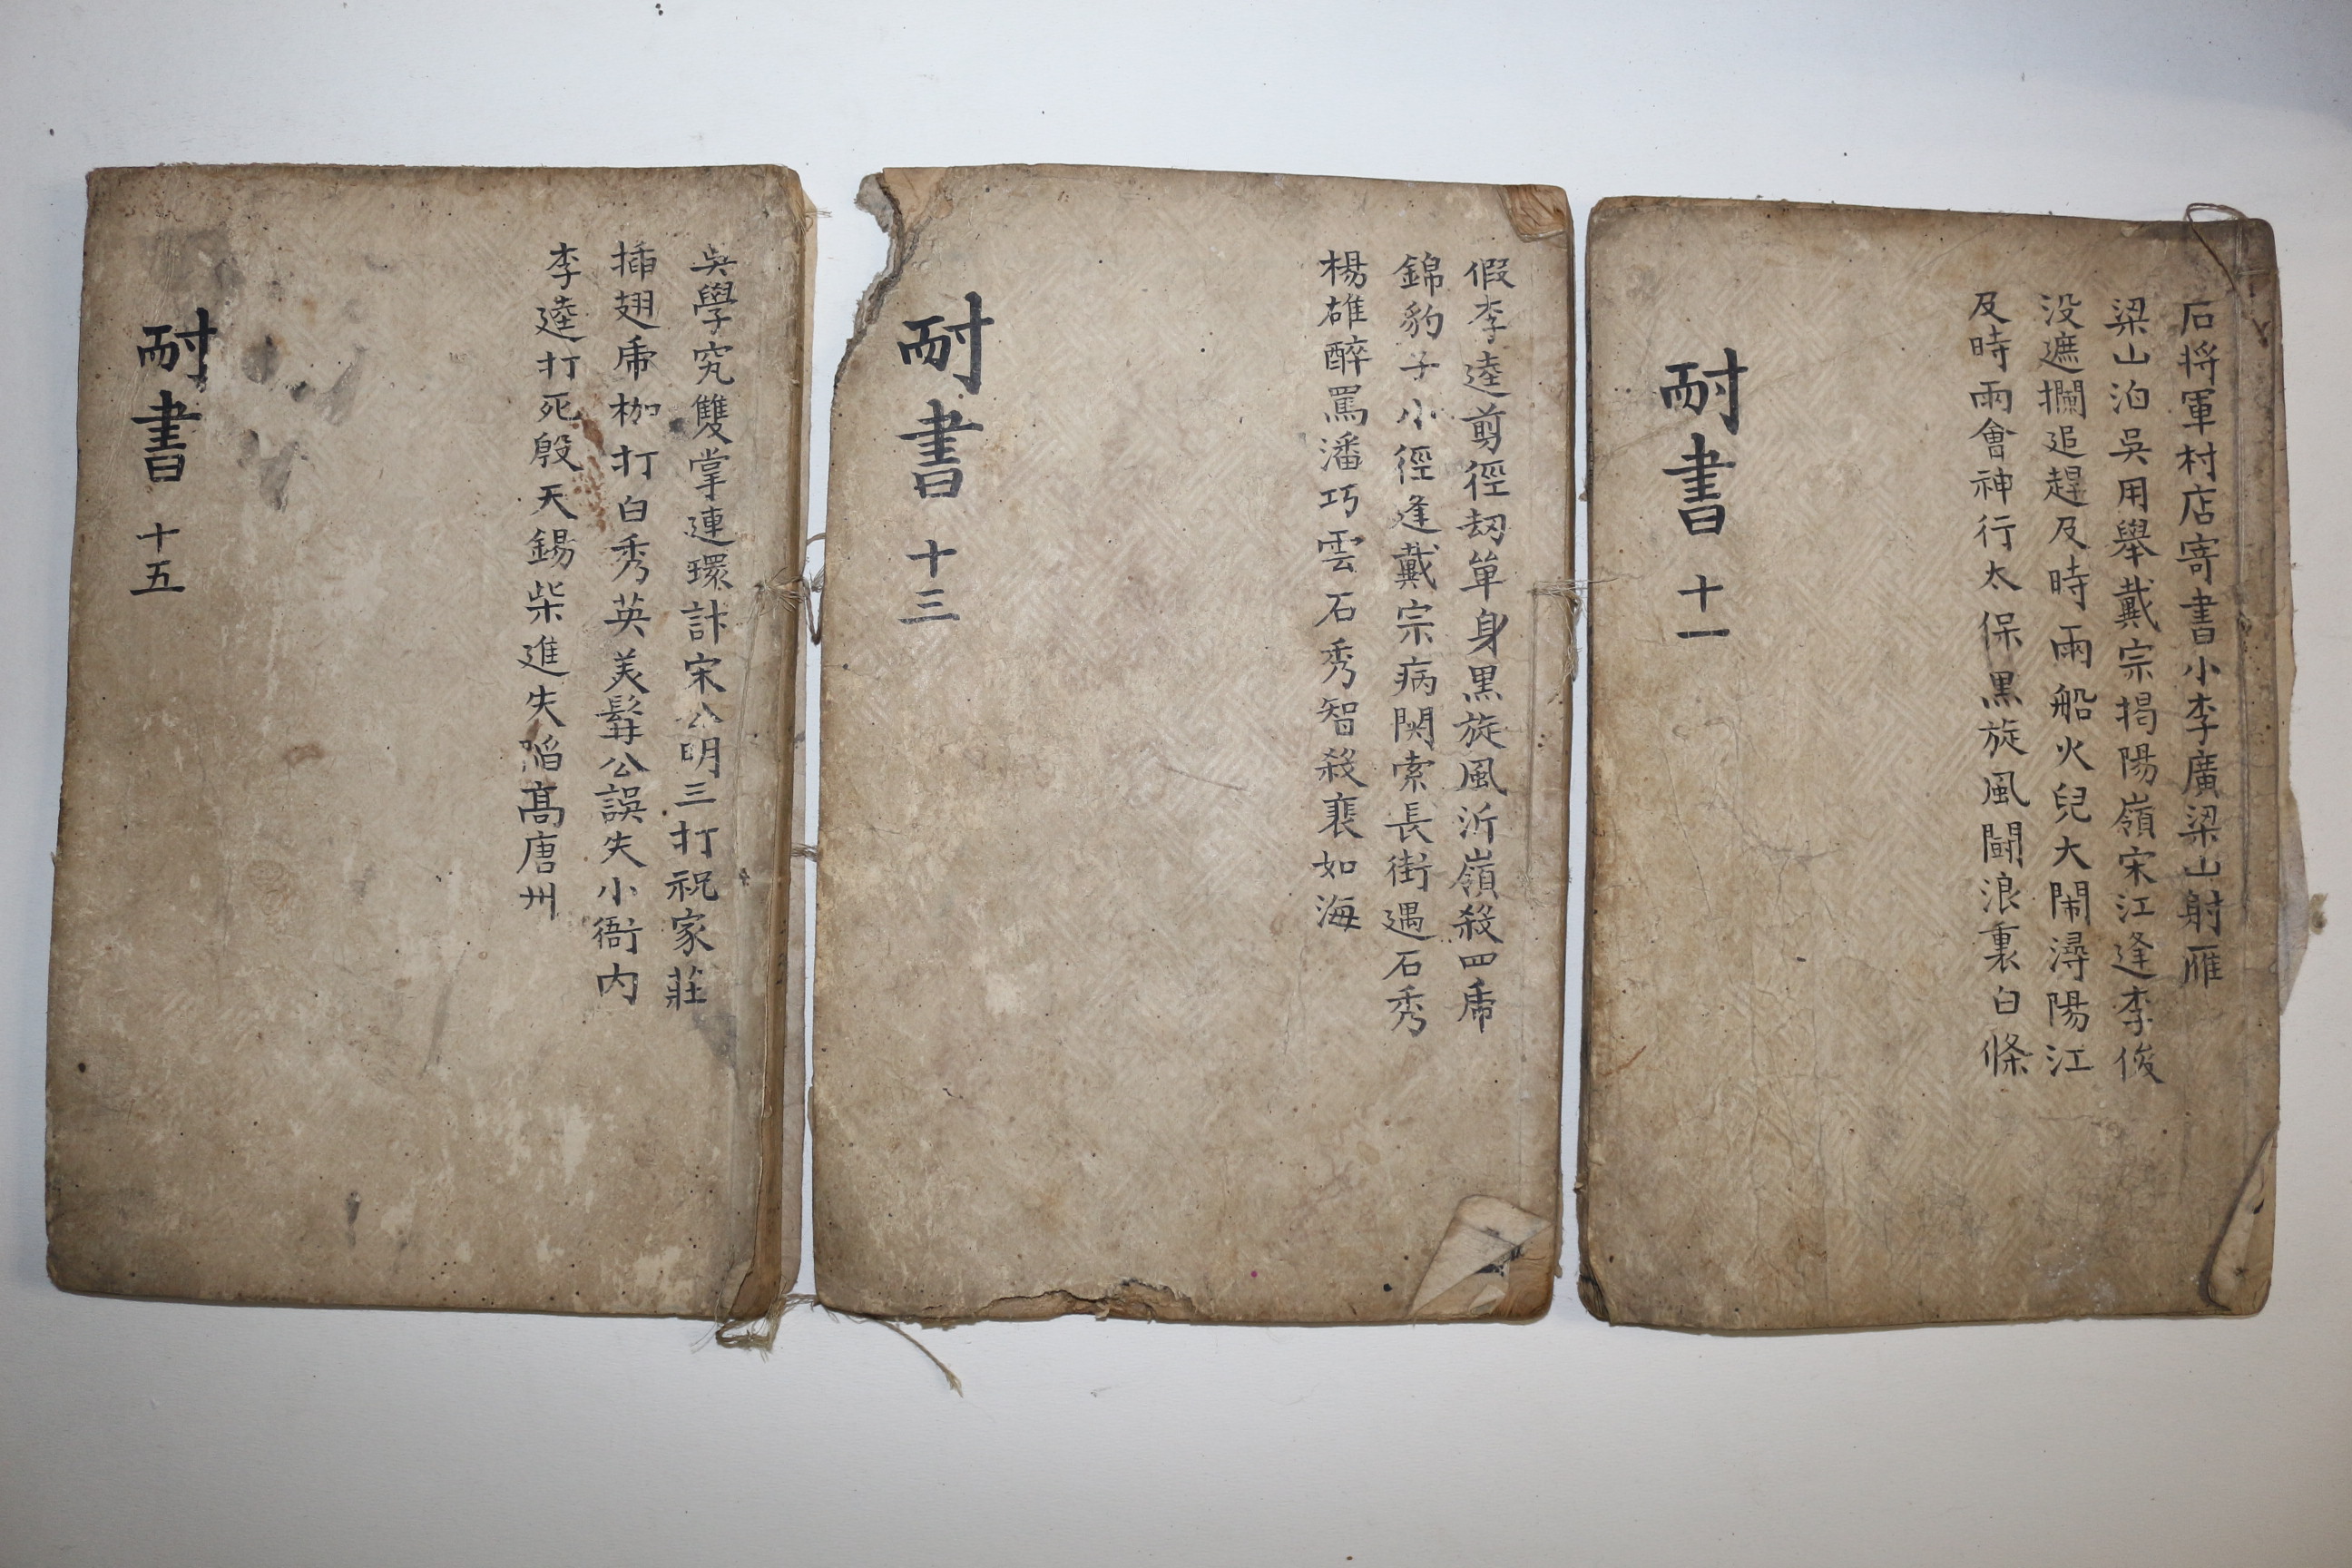 石将軍村店寄書小李廣梁山射雁
梁山泊吳用舉戴宗揭陽嶺宋江逢李俊
没遮攔追趕及時雨船火兒大鬧潯陽江
及時雨會神行太保黒旋風鬪浪裏白條
耐書 十一
假李逵剪徑刼單身黒旋風沂嶺殺四虎
錦豹子小徑逢戴宗病関索長街遇石秀
楊雄醉罵潘巧雲石秀智殺裴如海
耐書 十三
吳學究雙掌連環計宋公明三打祝家莊
插翅虎枷打白秀英美髯公誤失小衙内
李逵打死殷天錫柴進失陷髙唐州
耐書 十五